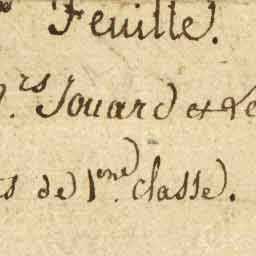 Feuille.
rs Jouard et Le
ts de 1ere classe.